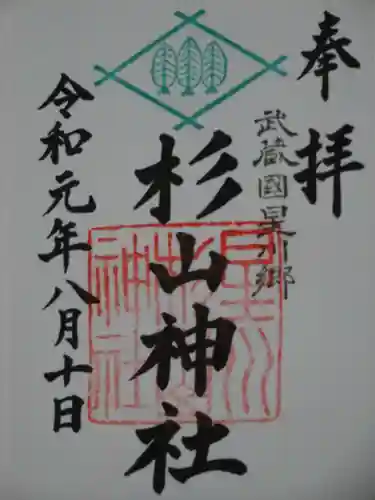 奉拝
武蔵國星川郷
杉山神社
星川
杉山
神社
令和元年八月十日